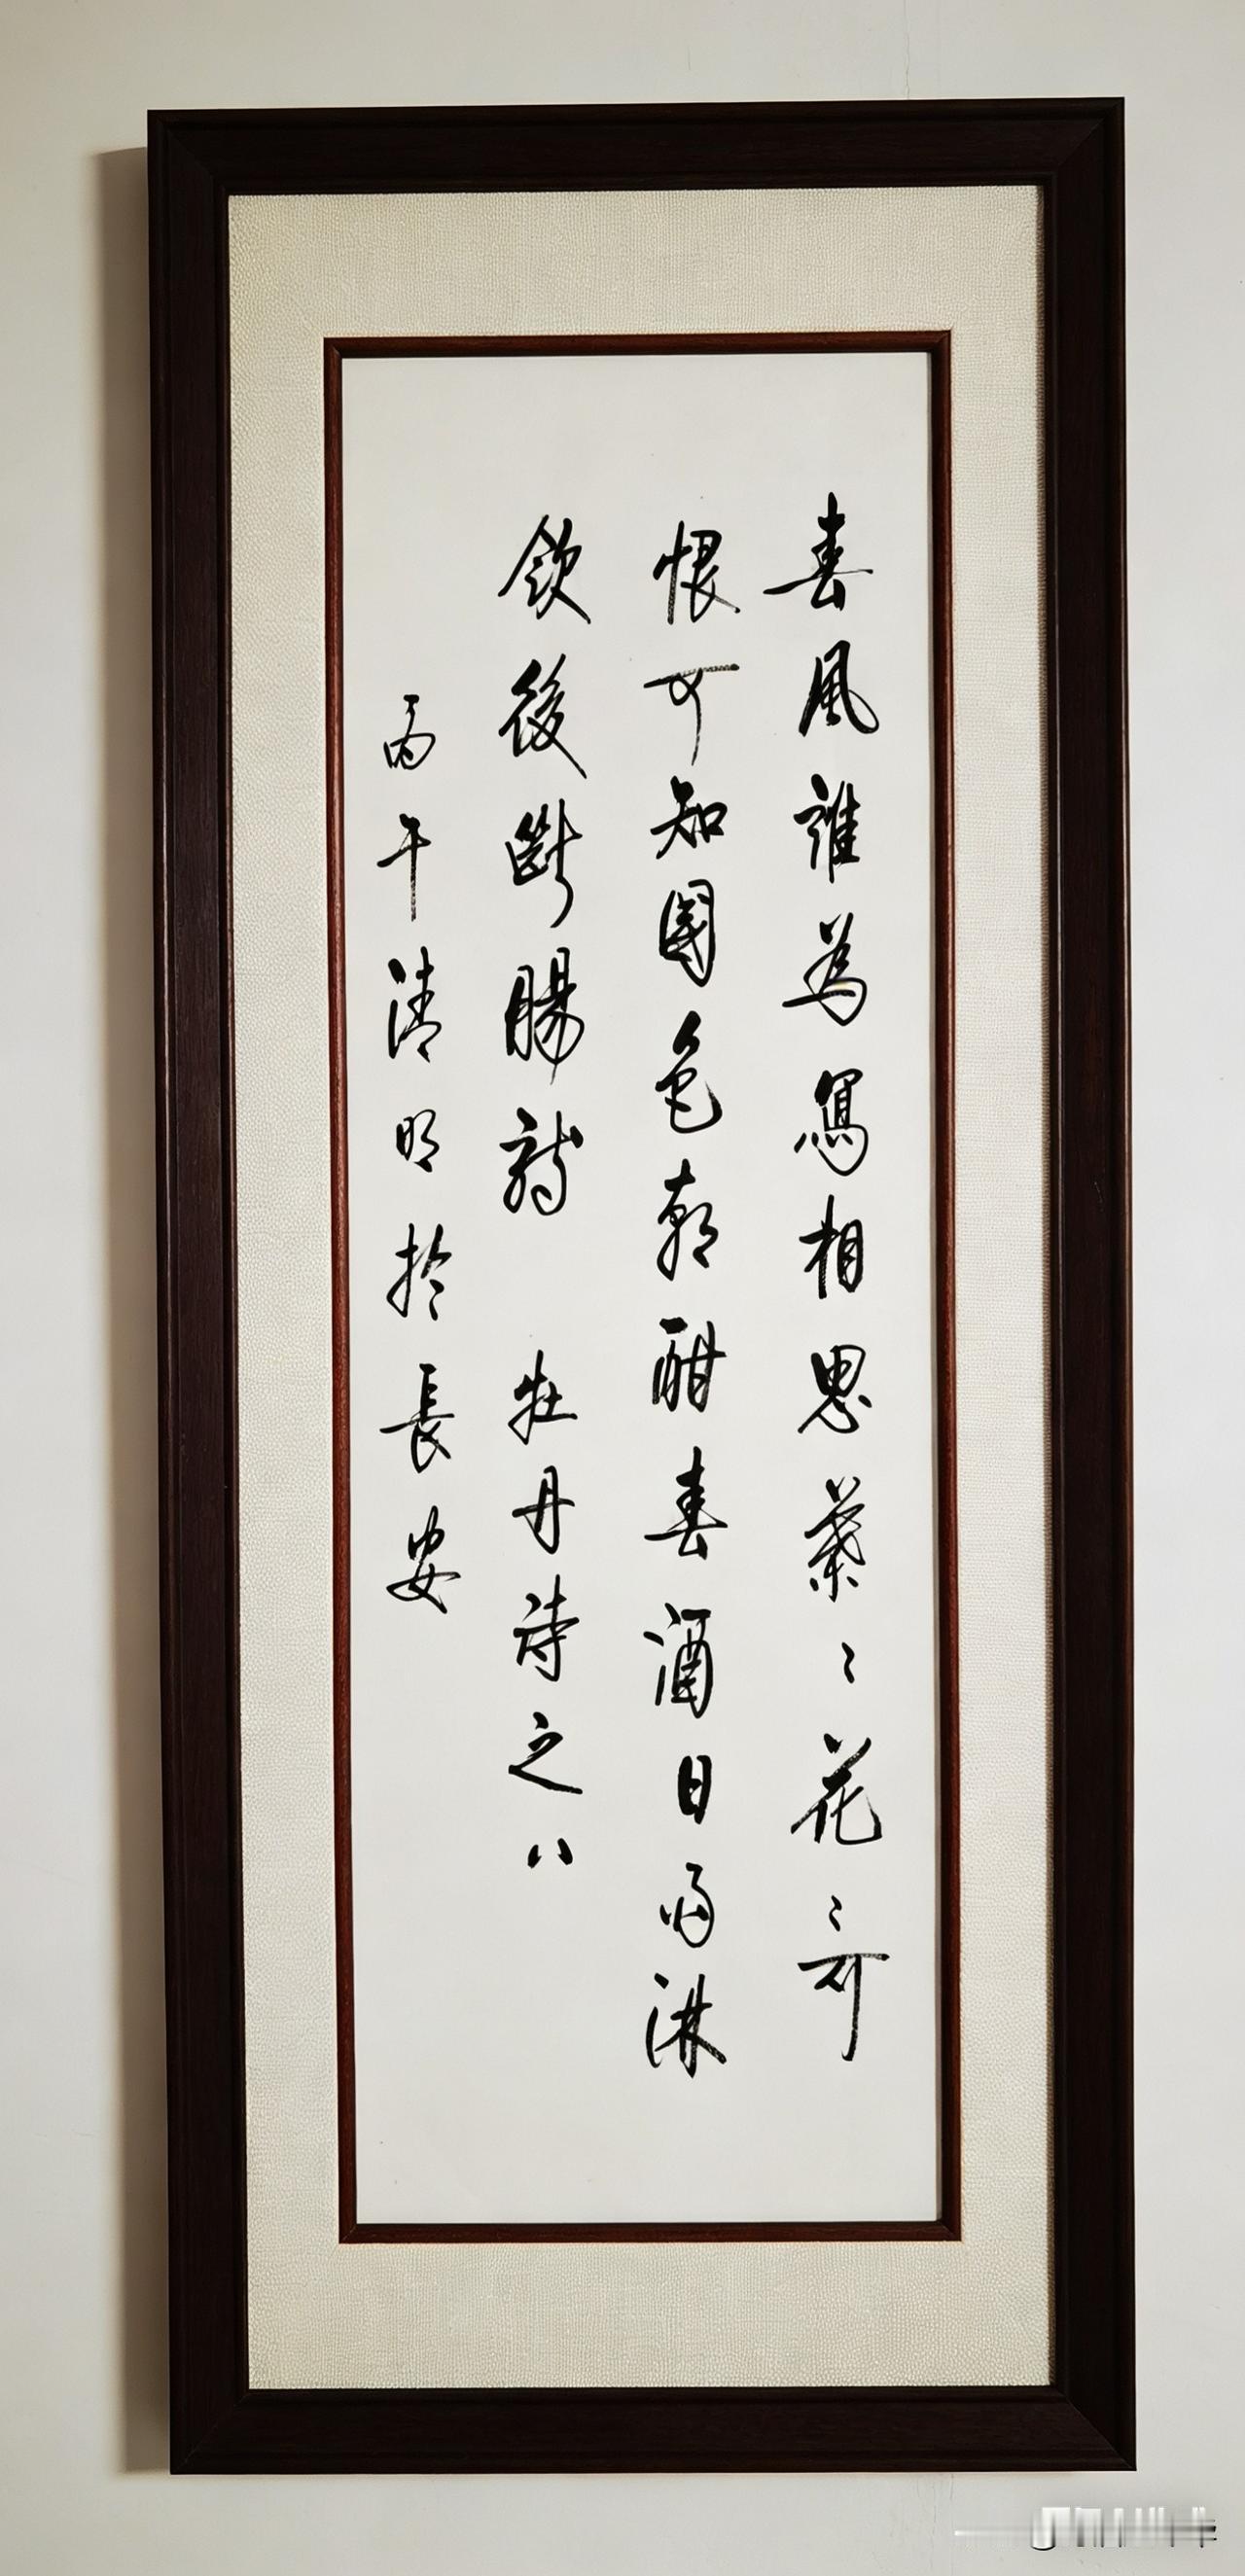 春風誰為寫相思葉〻花
恨可知國色朝酣春酒日淋
飲後斷腸 牡丹詩之八
丙午清明於長安